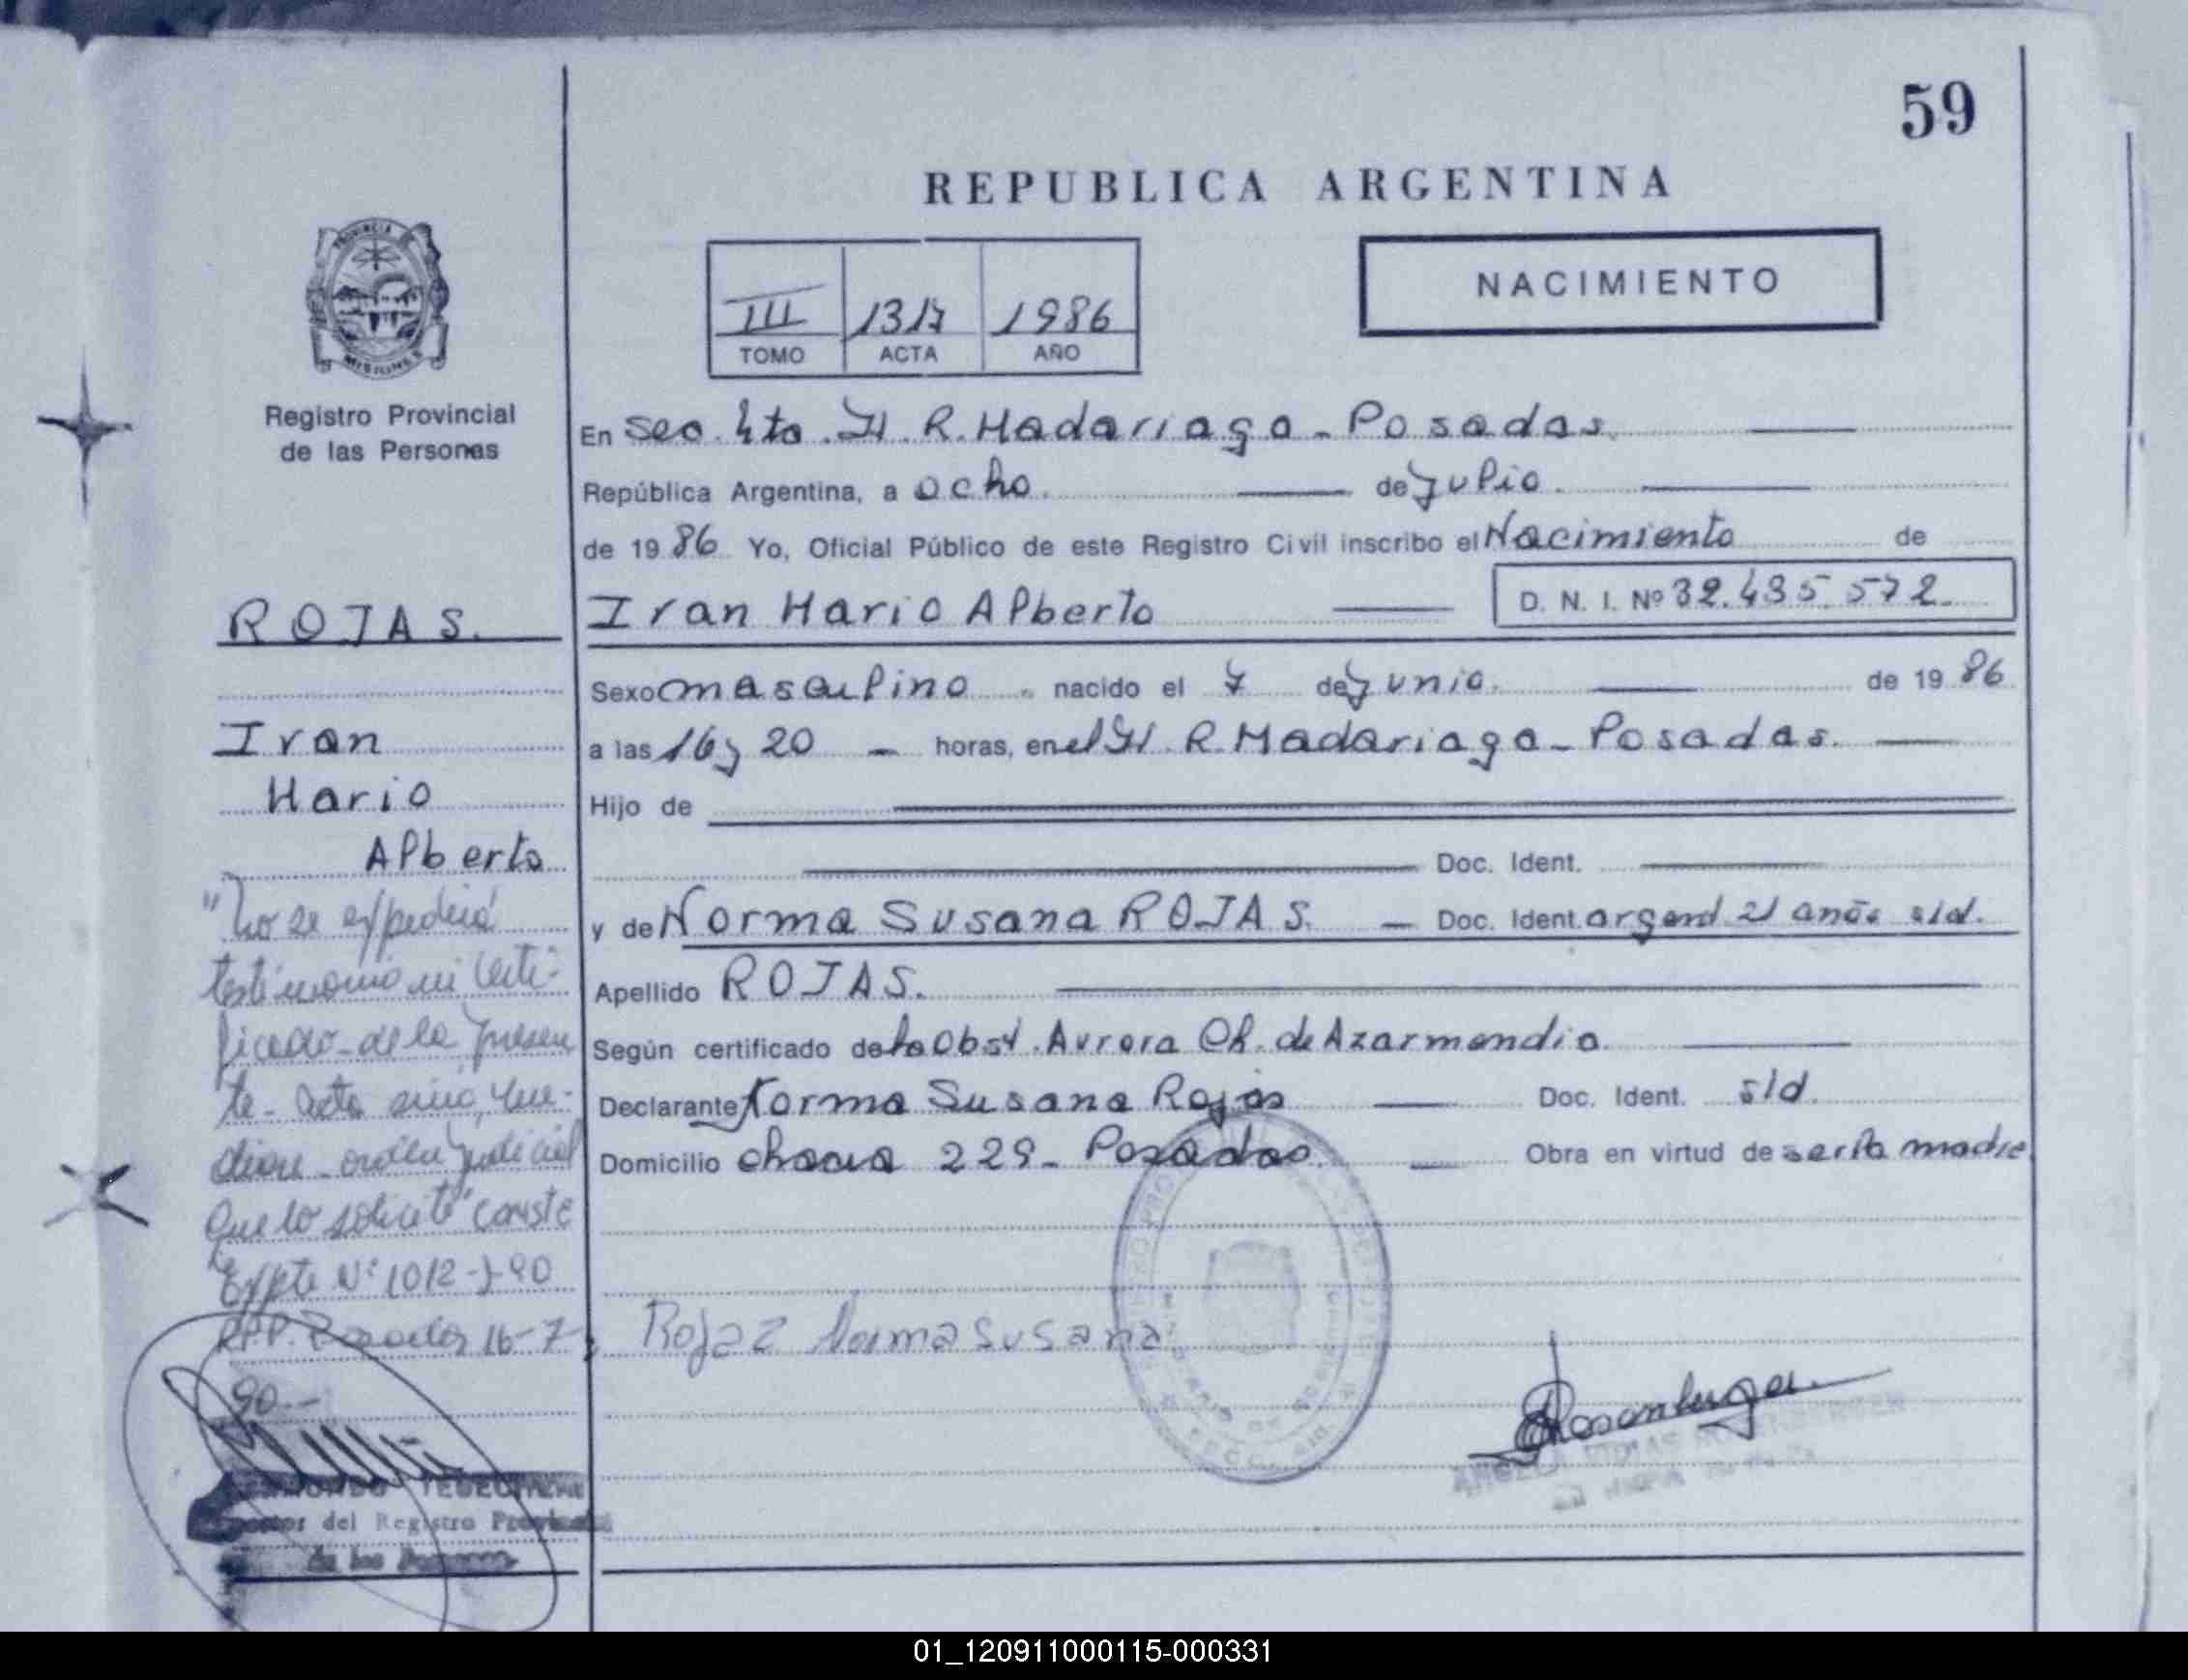 59
REPUBLICA ARGENTINA
PROVINCIA
MISIONES
III 1317 1986
TOMO ACTA AÑO
NACIMIENTO
Registro Provincial
de las Personas
ROJAS.
Ivan
Mario
Alberto
"No se expedirá
testimonio ni certi-
ficado de la presen
te acta sino me-
diare orden judicial
que lo solicite" conste
Expte Nº 1012-J-90
R.P.P. Posadas 16-7-
90.-
del Registro Provincial
de las Personas
En Sec. 4ta. H. R. Madariaga - Posadas.
República Argentina, a ocho. de Julio.
de 1986 Yo, Oficial Público de este Registro Civil inscribo el Nacimiento de
Ivan Mario Alberto D. N. I. Nº 32.435.572
Sexo masculino nacido el 7 de Junio. de 1986
a las 16 y 20 - horas, en el H. R. Madariaga - Posadas.
Hijo de
Doc. Ident.
y de Norma Susana ROJAS. - Doc. Ident. argent 21 años s/d.
Apellido ROJAS.
Según certificado de la Obst. Aurora Ch. de Azarmendia.
Declarante Norma Susana Rojas Doc. Ident. s/d.
Domicilio chacra 229 - Posadas. Obra en virtud de ser la madre
Rojaz Norma Susana
Rosenberger
01_120911000115-000331